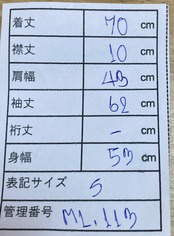 着丈 70 cm
襟丈 10 cm
肩幅 43 cm
袖丈 62 cm
裄丈 - cm
身幅 53 cm
表記サイズ S
管理番号 ML.113